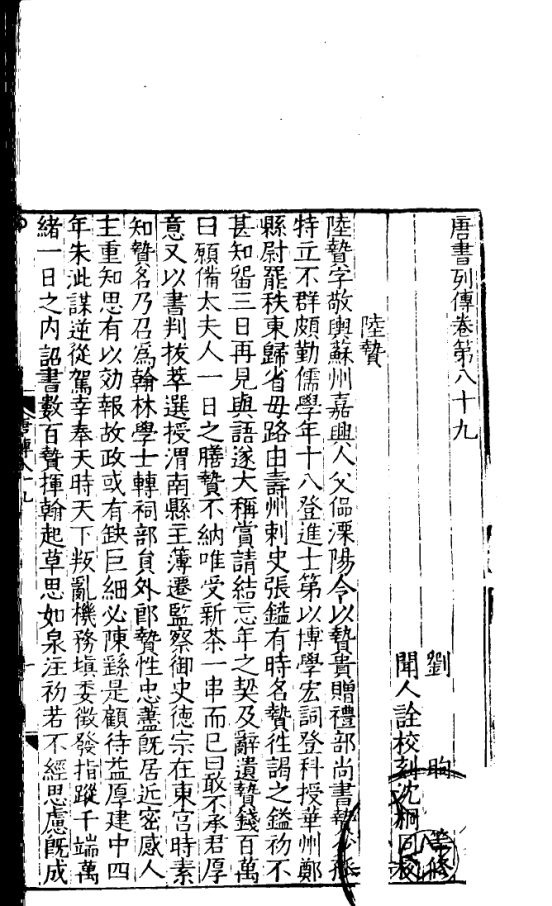 唐書列傳卷第八十九
劉 昫 等修
聞人詮校刻沈桐同校
陸贄
陸贄字敬輿蘇州嘉興人父侃溧陽令以贄貴贈禮部尚書贄少孤
特立不群頗勤儒學年十八登進士第以博學宏詞登科授華州鄭
縣尉罷秩東歸省母路由壽州刺史張鎰有時名贄徃謁之鎰初不
甚知留三日再見與語遂大稱賞請結忘年之契及辭遺贄錢百萬
曰願備太夫人一日之膳贄不納唯受新茶一串而已曰敢不承君厚
意又以書判拔萃選授渭南縣主薄遷監察御史德宗在東宮時素
知贄名乃召為翰林學士轉祠部貟外郎贄性忠藎既居近密感人
主重知思有以効報故政或有缺巨細必陳繇是顧待益厚建中四
年朱泚謀逆從駕幸奉天時天下叛亂機務塡委徵發指蹤千端萬
緒一日之內詔書數百贄揮翰起草思如泉注初若不經思慮旣成
唐傳八十九